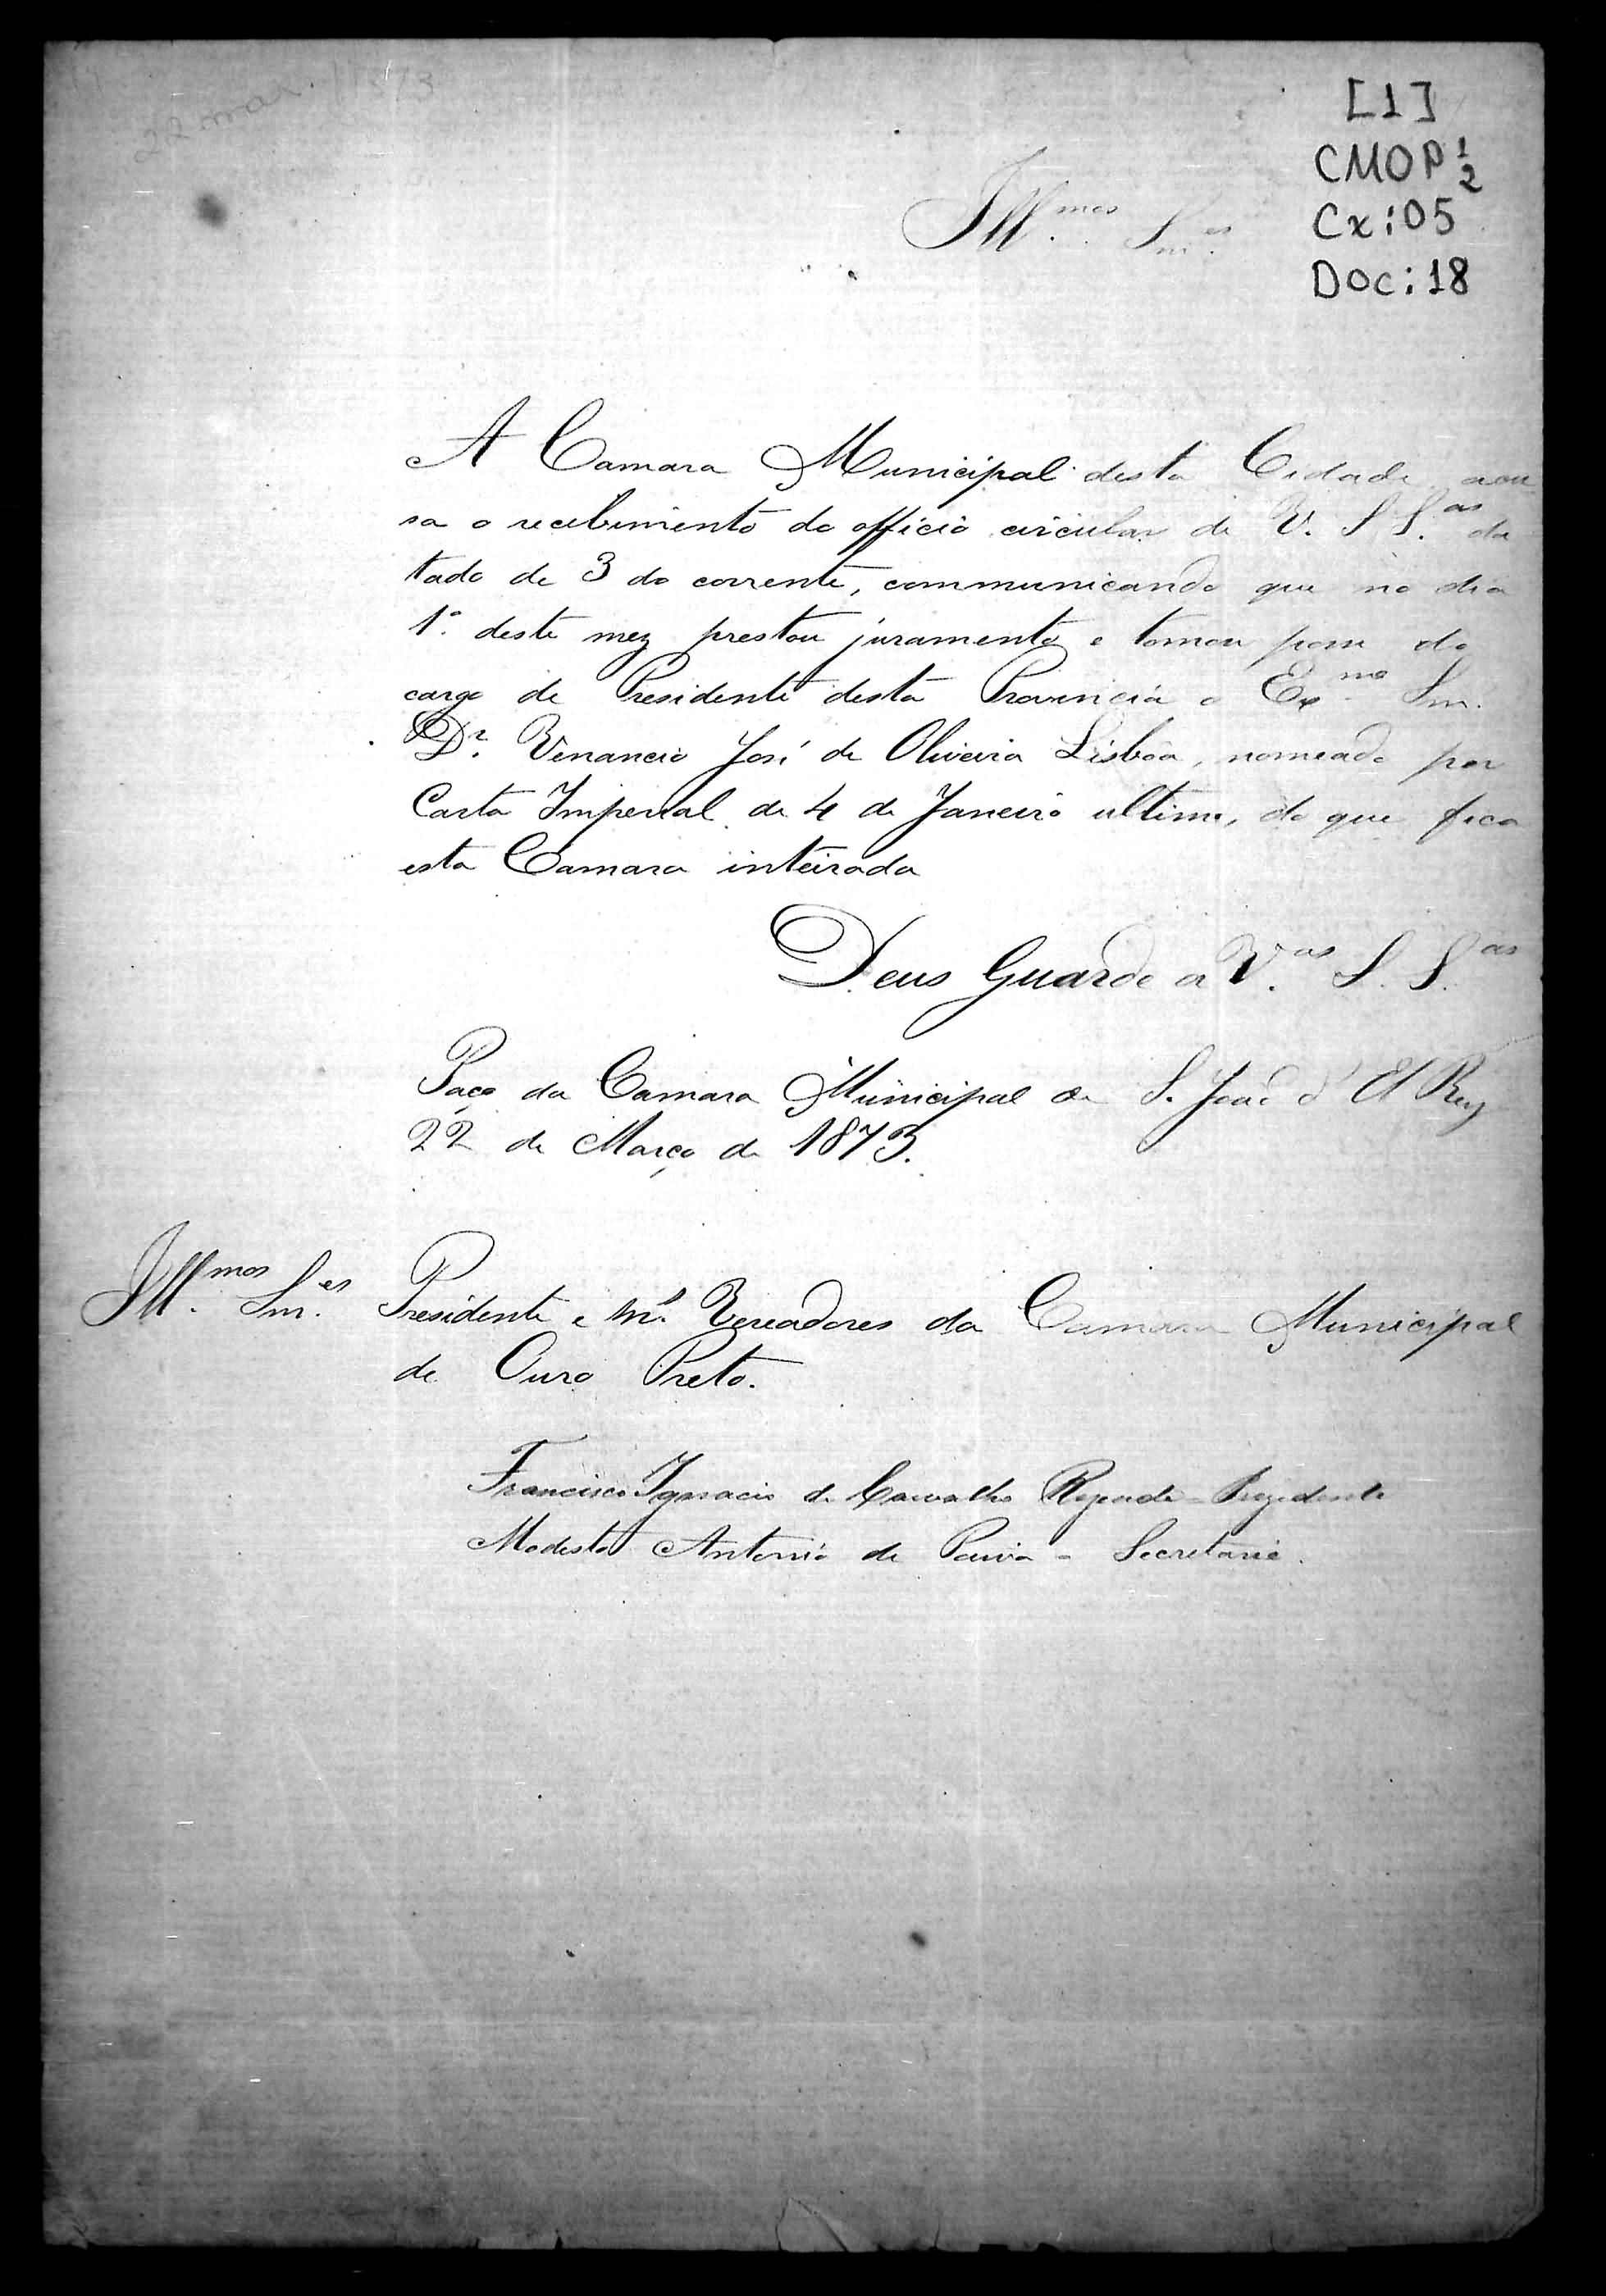 22 mar. 1873
[1]
CMOP 1/2
Cx: 05
Doc: 18
Ill.mos Snr.es
A Camara Municipal desta Cidade accu
sa o recebimento do officio circular de V. S S.as da
tado de 3 do corrente, communicando que no dia
1º. deste mez prestou juramento e tomou posse do
cargo de Presidente desta Provincia o Ex.mo Snr.
Dr. Venancio José de Oliveira Lisbôa, nomeado por
Carta Imperial de 4 de Janeiro ultimo, do que fica
esta Camara inteirada
Deus Guarde a V.as S. S.as
Paço da Camara Municipal de S. João d' El Rey
22 de Março de 1873.
Ill.mos Snr.es Presidente e m.s Vereadores da Camara Municipal
de Ouro Preto.
Francisco Ignacio de Carvalho Rezende - Prezidente
Modesto Antonio de Paiva - Secretario.